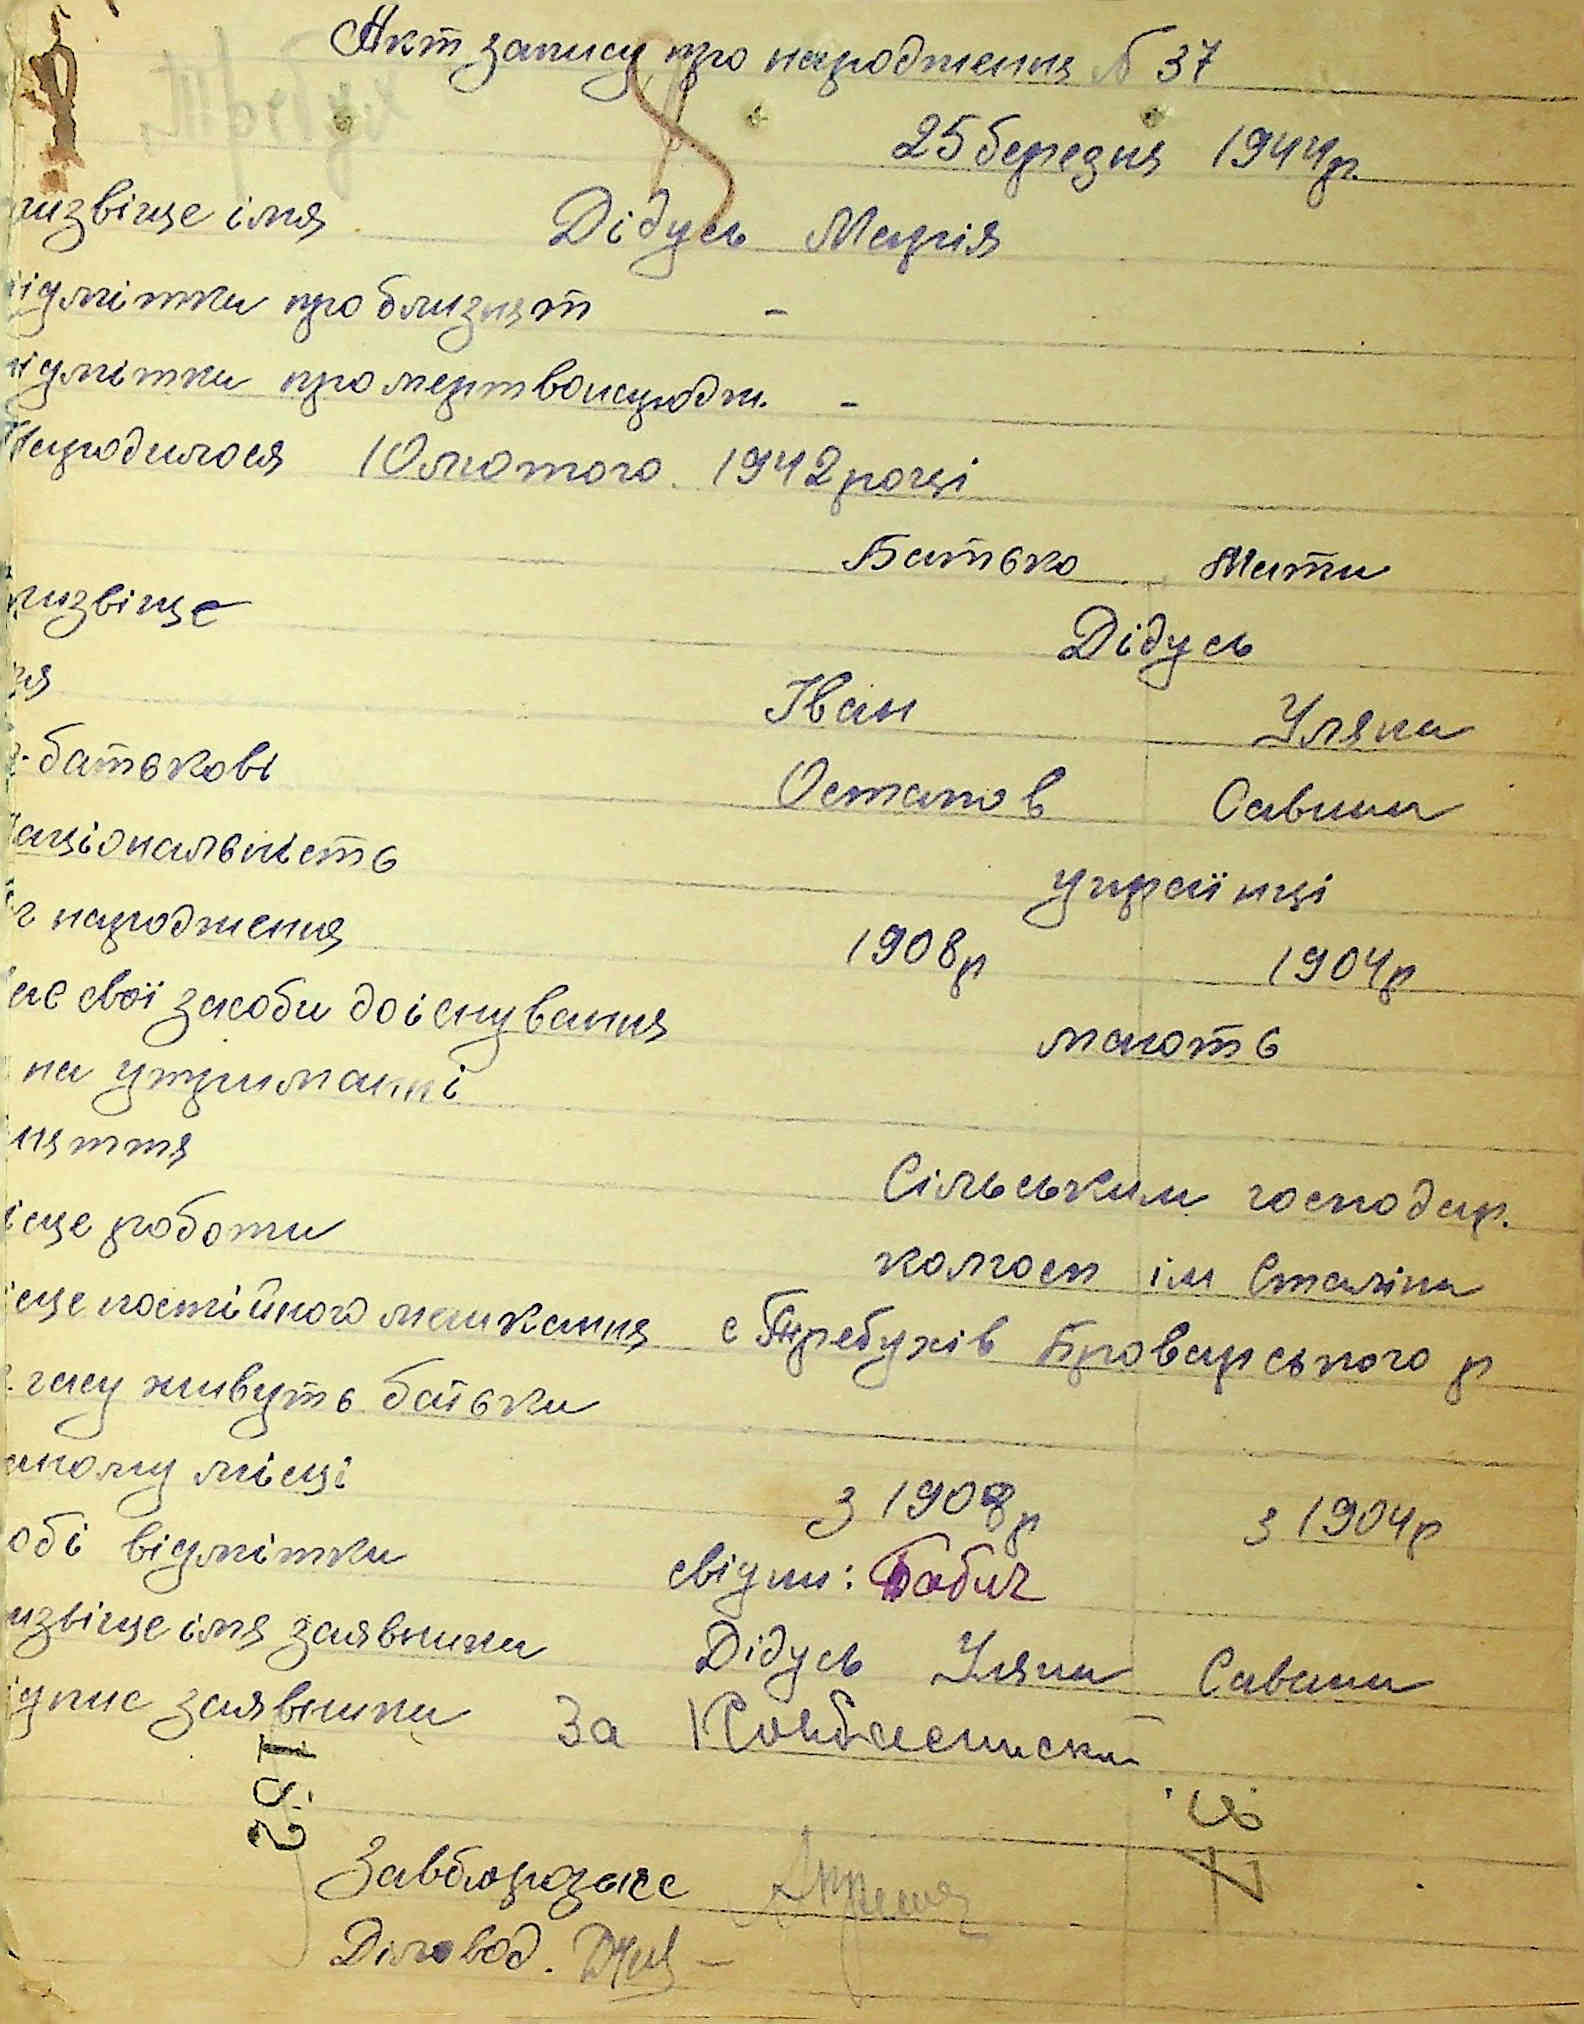 Акт запису про народження № 37
Требухів
25 березня 1944р.
ризвіще імя Дідусь Марія
ідмітки про близнят -
ідмітки про мертвонародж. -
Народилося 10 лютого 1942 році
Батько Мати
ризвіще Дідусь
мя Іван Уляна
батькові Остапов Савина
аціональність українці
к народження 1908р 1904р
має свої засоби до існування мають
на утриманні
няття Сільським господар.
ісце роботи колгосп ім Сталіна
ісце постійного мешкання с Требухів Броварського р
часу живуть батьки
аному місці з 1908р з 1904р
обі відмітки свідки: Бабич
ризвіще імя заявника Дідусь Уляна Савина
ідпис заявника За
Завбюрозагс
Діловод.